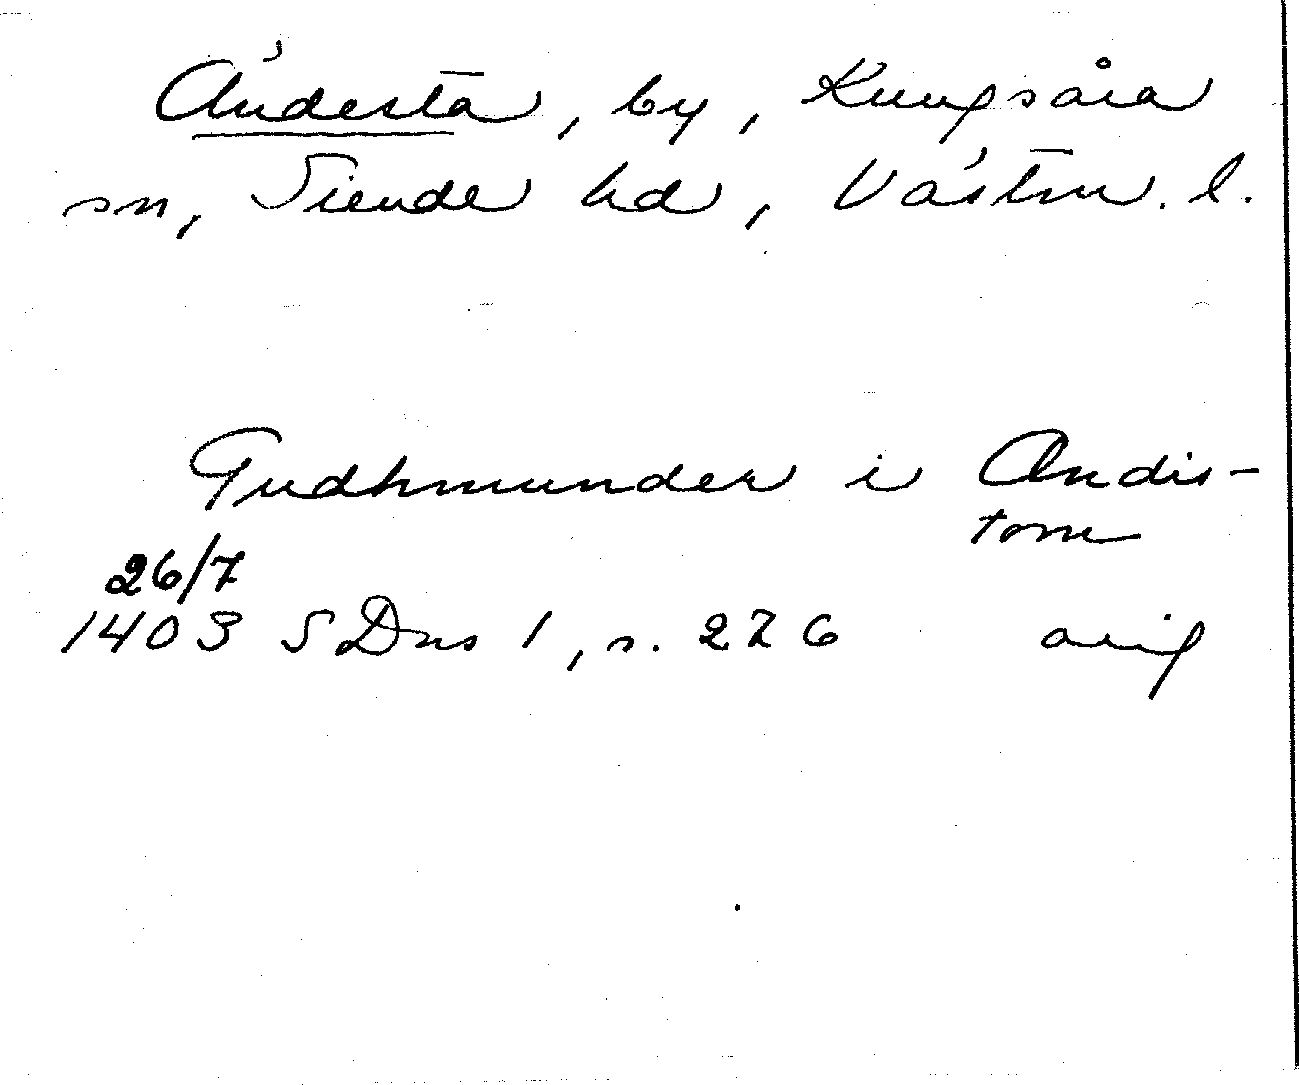 Ändesta, by, Kungsåra
sn, Siende hd, Västm. l.
Gudhmunder i Andis-
tom
26/7
1403 SDns 1, s. 226 orig